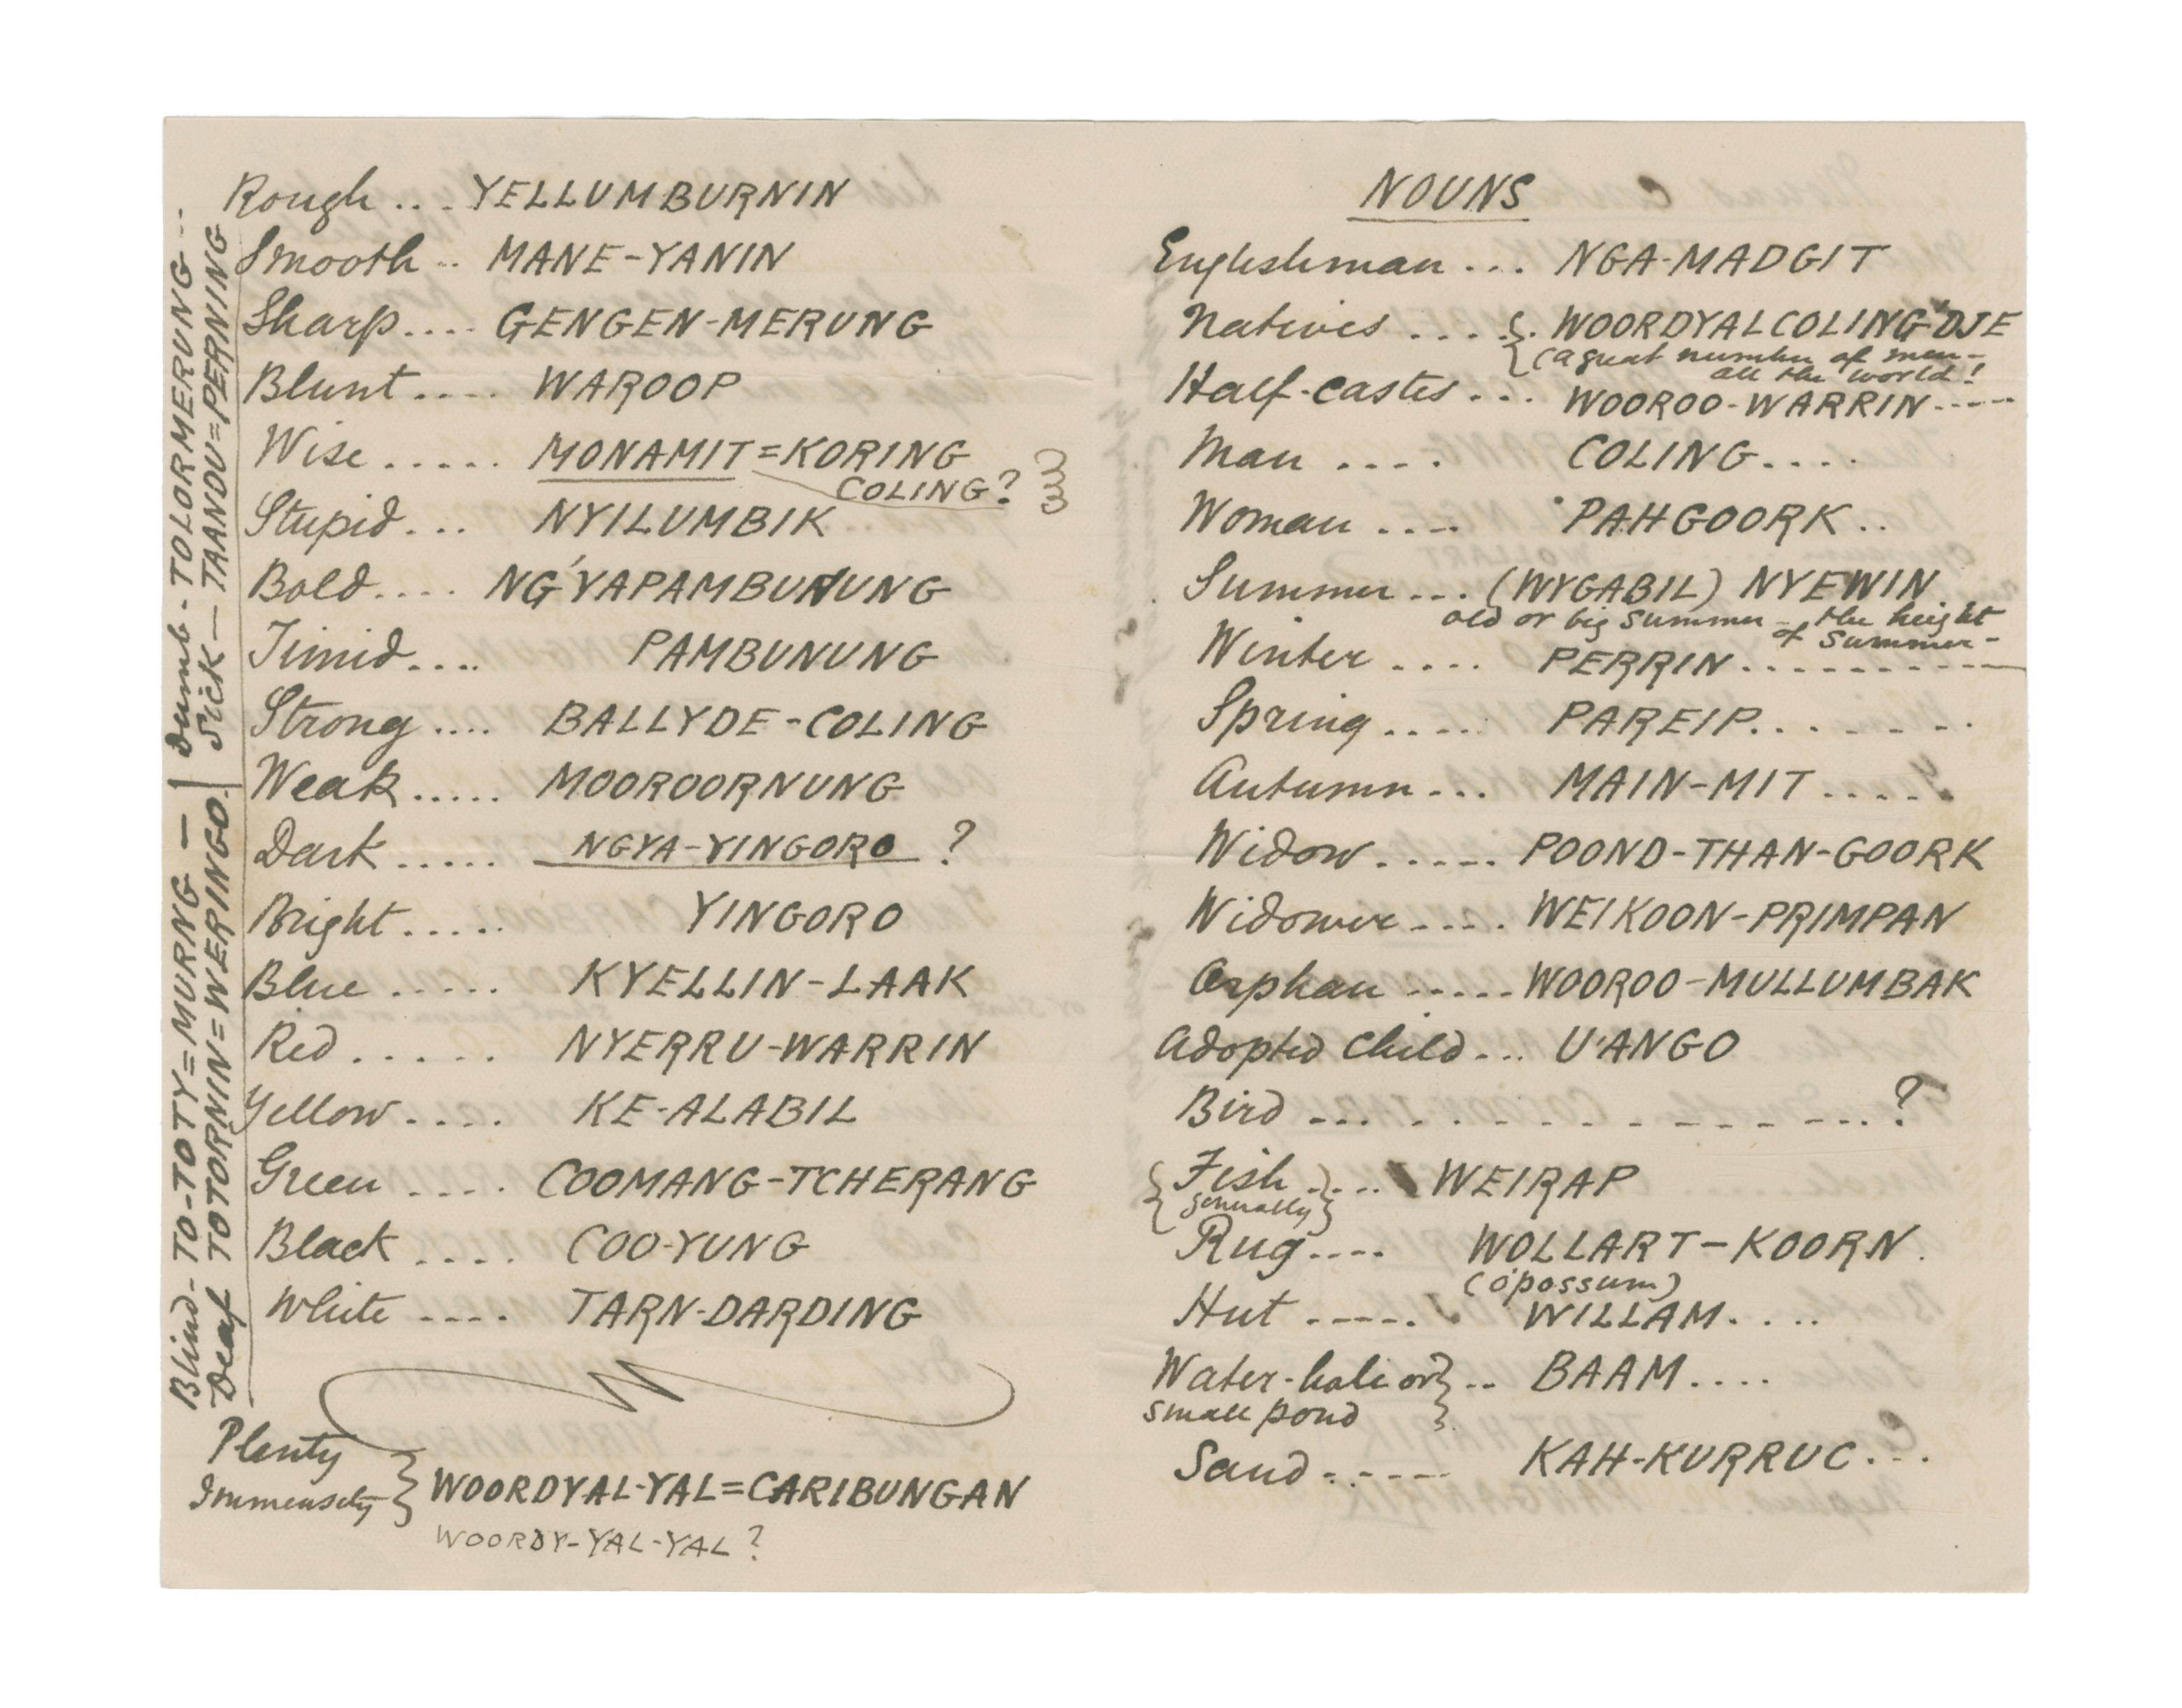 Rough .... YELLUMBURNIN
Smooth .. MANE-YANIN
Sharp.... GENGEN-MERUNG
Blunt.... WAROOP
Wise ..... MONAMIT=KORING
COLING?
Stupid... NYILUMBIK
Bold.... NG'YAPAMBUNUNG
Timid.... PAMBUNUNG
Strong .... BALLYDE-COLING
Weak ..... MOOROORNUNG
Dark ..... NGYA-YINGORO ?
Bright ..... YINGORO
Blue ..... KYELLIN-LAAK
Red ..... NYERRU-WARRIN
Yellow .... KE-ALABIL
Green .... COOMANG-TCHERANG
Black .... COO-YUNG
White .... TARN-DARDING
Plenty
Immensely } WOORDYAL-YAL=CARIBUNGAN
WOORDY-YAL-YAL?
Blind - TO-TOTY=MURNG — | Dumb - TOLORMERUNG...
Deaf TOTORNIN=WERINGO. | Sick — TAANDU=PERNING
NOUNS
Englishman ... NGA-MADGIT
Natives .... { WOORDYALCOLING'DJE
(a great number of men -
all the world!
Half-castes ... WOOROO-WARRIN----
Man .... COLING....
Woman .... PAHGOORK..
Summer ... (WYGABIL) NYEWIN
old or big summer - the height
of summer -
Winter .... PERRIN..........
Spring ..... PAREIP.......
Autumn ... MAIN-MIT.....
Widow ..... POOND-THAN-GOORK
Widower ..... WEIKOON-PRIMPAN
Orphan ..... WOOROO-MULLUMBAK
Adopted Child ... U'ANGO
Bird ...............?
{ Fish .... WEIRAP
generally }
Rug.... WOLLART-KOORN.
(opossum)
Hut ..... WILLAM....
Water-hole or } .. BAAM....
small pond
Sand ..... KAH-KURRUC...